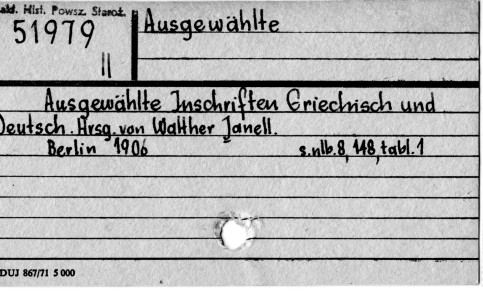 Zakł. Hist. Powsz. Staroż.
51979
II
Ausgewählte
Ausgewählte Inschriften Griechisch und
Deutsch. Hrsg. von Walther Janell.
Berlin 1906 s.nlb. 8, 148, tabl. 1
DUJ 867/71 5 000